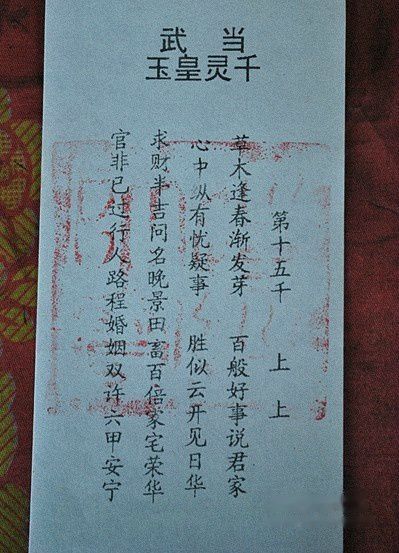 武当
玉皇灵千
第十五千 上上
草木逢春渐发芽 百般好事说君家
心中纵有忧疑事 胜似云开见日华
求财半吉问名晚景田畜百倍家宅荣华
官非已过行人路程婚姻双许六甲安宁